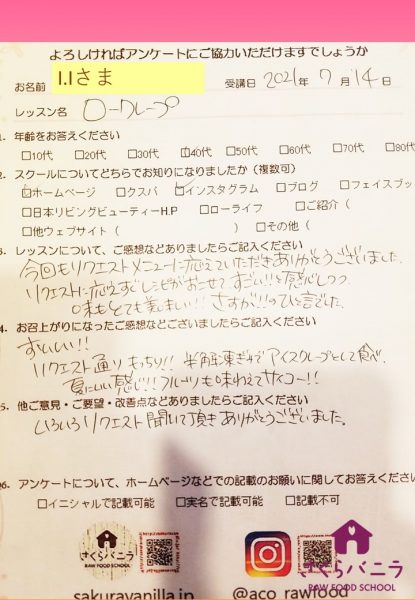 よろしければアンケートにご協力いただけますでしょうか
お名前 I.Iさま 受講日 2021年7月14日
レッスン名 ロークレープ
1. 年齢をお答えください
□10代 □20代 □30代 □40代 □50代 □60代 □70代 □80代
2. スクールについてどちらでお知りになりましたか（複数可）
□ホームページ □クスパ □インスタグラム □ブログ □フェイスブッ
□日本リビングビューティーH.P □ローライフ □ご紹介（
□他ウェブサイト（ ） □その他（
3. レッスンについて、ご感想などありましたらご記入ください
今回もリクエストメニューに応えていただきありがとうございました。
リクエストに応えすぐレシピがおこせて、すごい!!と感心しつつ
味もとても美味しい!! さすが!!のひと言でした。
4. お召上がりになったご感想などございましたらご記入ください
すごいいい!!
リクエスト通りもっちり!! 半解凍ぎみでアイスクレープとして食べ、
夏にいい感じ!! フルーツも味わえてサイコー!!
5. 他ご意見・ご要望・改善点などありましたらご記入ください
いろいろリクエスト聞いて頂きありがとうございました。
Q6. アンケートについて、ホームページなどでの記載のお願いに関してお答えくださ
□イニシャルで記載可能 □実名で記載可能 □記載不可
さくらバニラ
RAW FOOD SCHOOL
さくらバニラ
RAW FOOD SCHOOL
sakuravanilla.jp @aco_rawfood